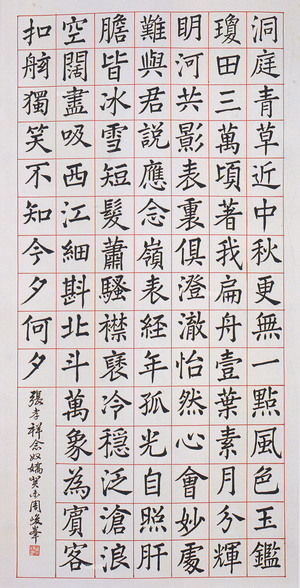 洞庭青草近中秋更無一點風色玉鑑
瓊田三萬頃著我扁舟壹葉素月分輝
眀河共影表裏俱澄澈怡然心會妙處
難與君説應念嶺表経年孤光自照肝
膽皆冰雪短髮蕭騷襟褎冷穩泛滄浪
空闊盡吸西江細斟北斗萬象為賓客
扣舷獨笑不知今夕何夕
張孝祥念奴嬌周峻峯